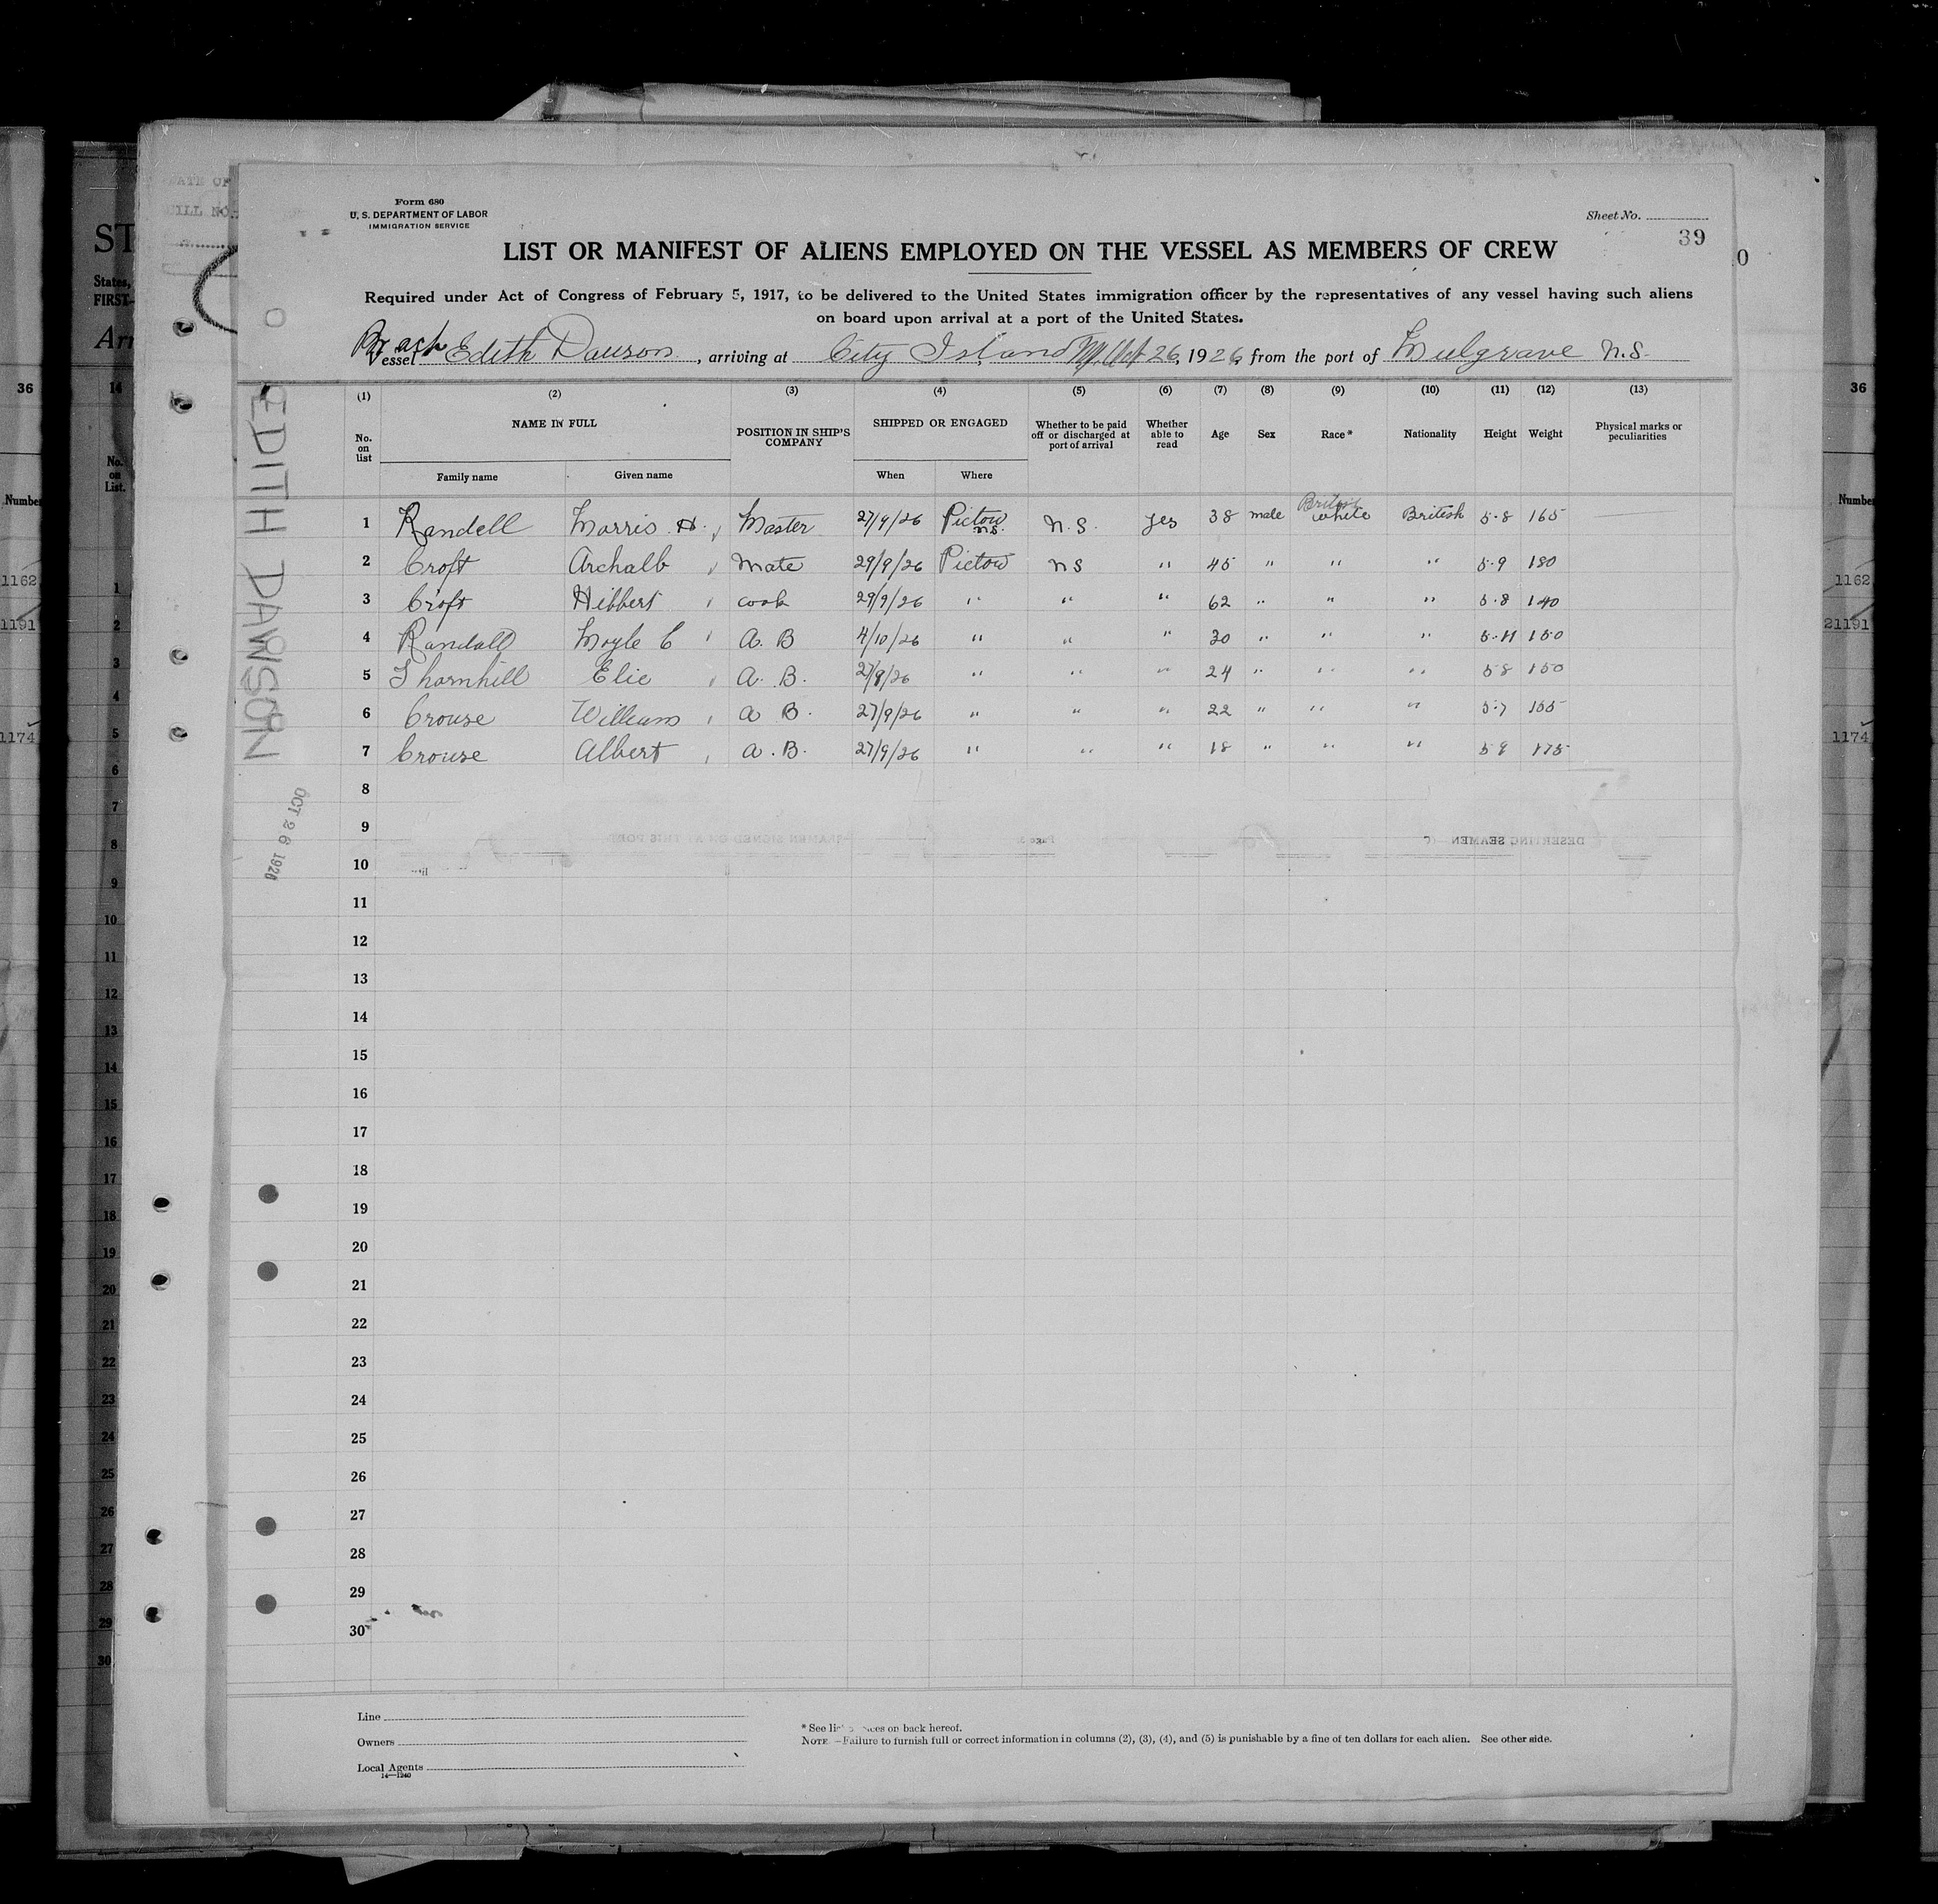 Form 680
U. S. DEPARTMENT OF LABOR
IMMIGRATION SERVICE
Sheet No.
39
LIST OR MANIFEST OF ALIENS EMPLOYED ON THE VESSEL AS MEMBERS OF CREW
Required under Act of Congress of February 5, 1917, to be delivered to the United States immigration officer by the representatives of any vessel having such aliens
on board upon arrival at a port of the United States.
Vessel Edith Dawson, arriving at City Island Oct 26, 1926, from the port of Mulgrave N.S.
(1) (2) (3) (4) (5) (6) (7) (8) (9) (10) (11) (12) (13)
No. on list NAME IN FULL Family name Given name POSITION IN SHIP'S COMPANY SHIPPED OR ENGAGED When Where Whether to be paid off or discharged at port of arrival Whether able to read Age Sex Race* Nationality Height Weight Physical marks or peculiarities
1 Randell Morris H. Master 27/9/26 Pictou N.S. N.S. yes 38 male British white British 5.8 165
2 Croft Archalb Mate 29/9/26 Pictou NS " 45 " " " 5.9 180
3 Croft Hibbert cook 29/9/26 " " " 62 " " " 5.8 140
4 Randall Moyle C A. B 4/10/26 " " " 30 " " " 5.11 150
5 Thornhill Elie A. B. 27/9/26 " " " 24 " " " 5 8 150
6 Crouse William A B. 27/9/26 " " " 22 " " " 5.7 155
7 Crouse Albert A. B. 27/9/26 " " " 18 " " " 5 9 175
8
9
10
11
12
13
14
15
16
17
18
19
20
21
22
23
24
25
26
27
28
29
30
EDITH DAWSON
OCT 26 1926
Line
Owners
Local Agents
14—1240
* See list on back hereof.
NOTE.—Failure to furnish full or correct information in columns (2), (3), (4), and (5) is punishable by a fine of ten dollars for each alien. See other side.